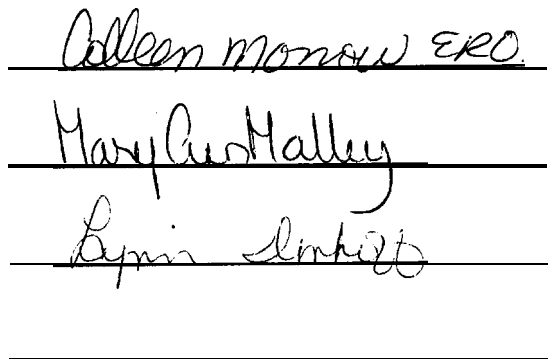 Colleen Morrow ERO.
Mary Ann Malley
Lynn